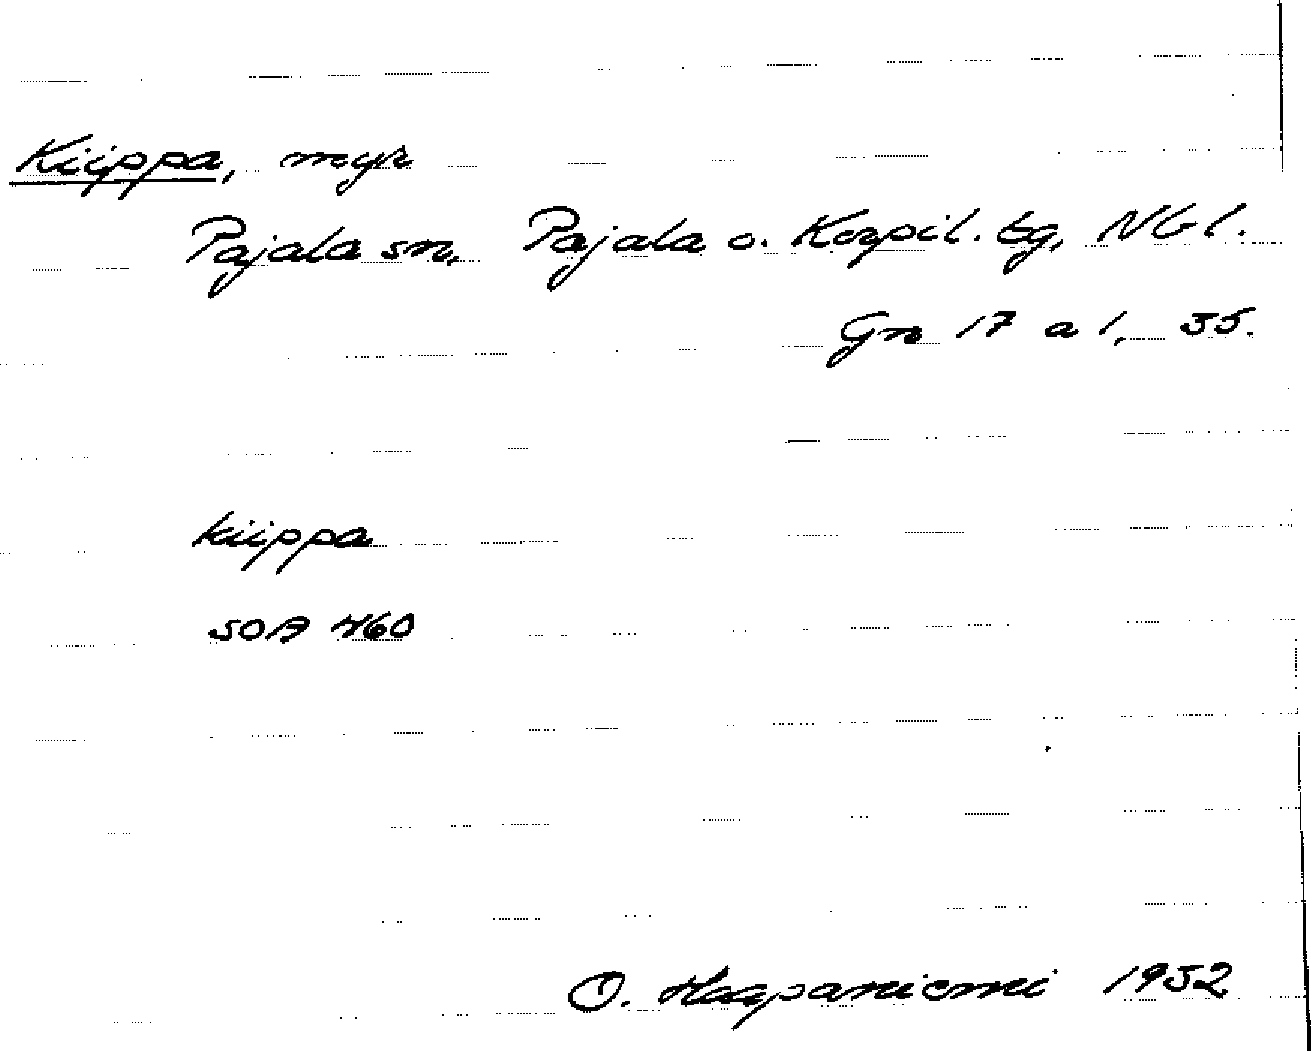 Kiippa, myr
Pajala sn, Pajala o. Korpil. tg, Nbl.
Gn 17 a 1, 35.
kiippa
SOA 460
O. Haapaniemi 1952